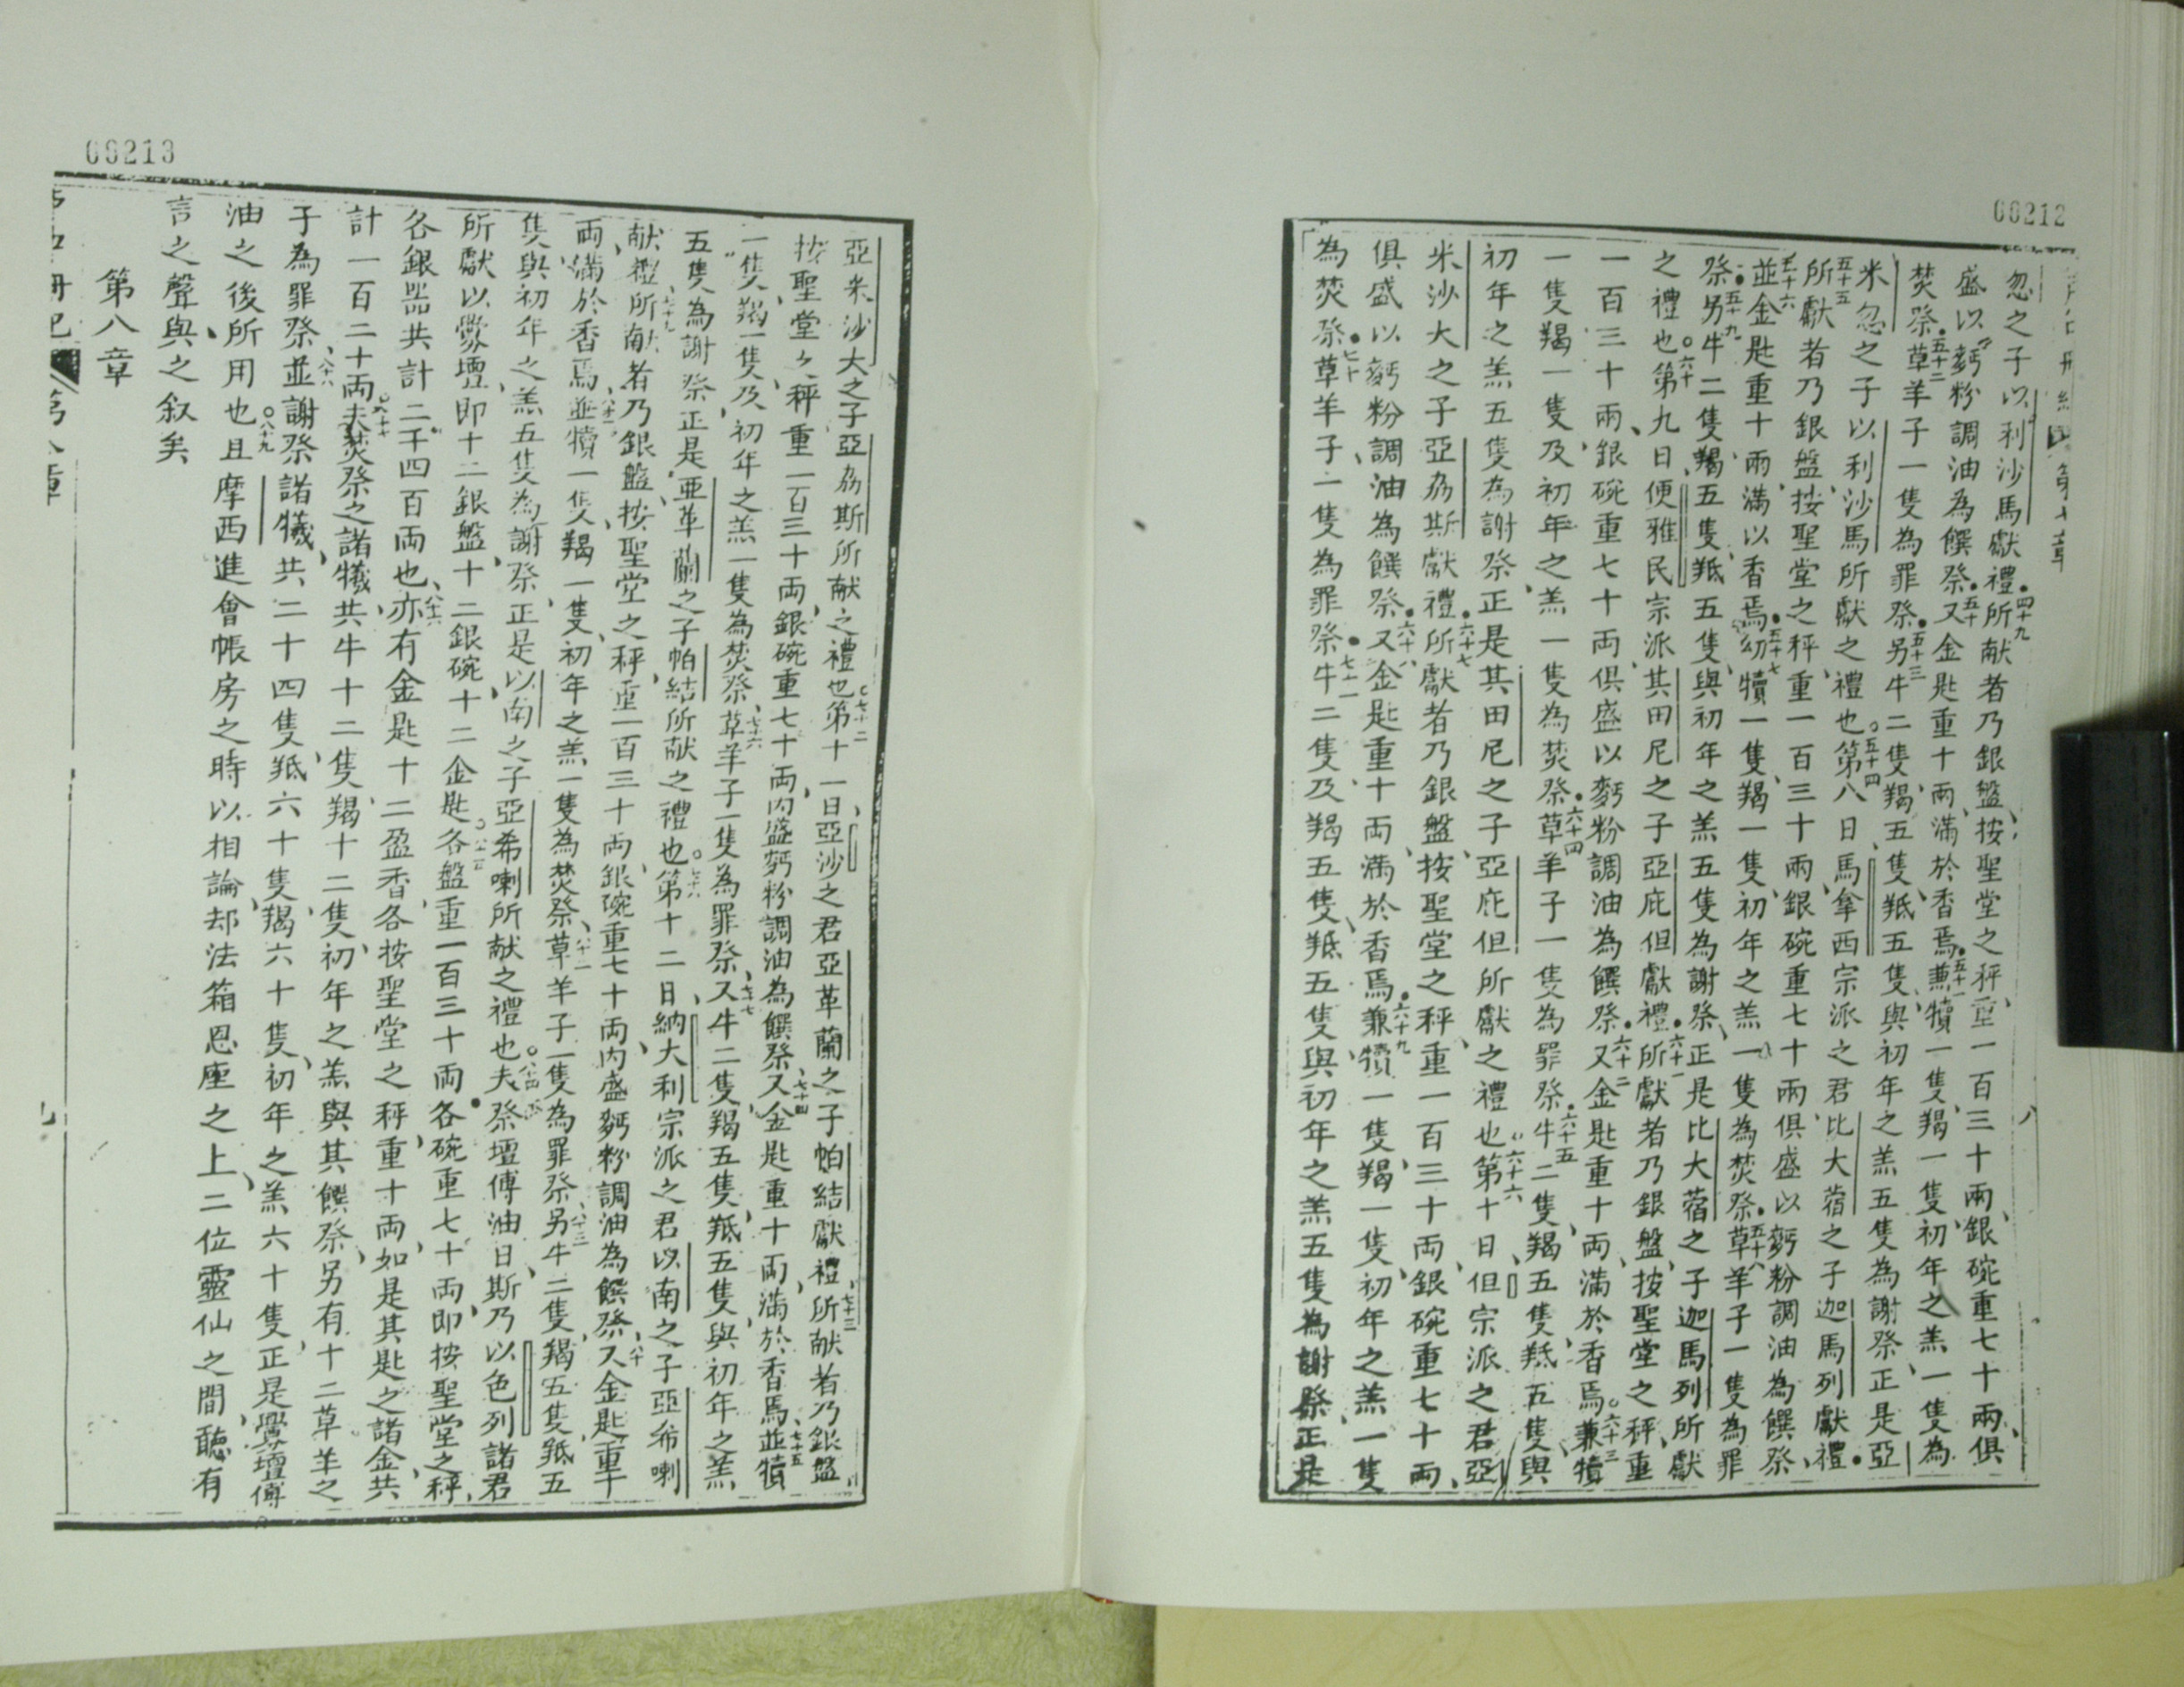 00212
第七章
八
忽之子以利沙馬獻禮四十九所献者乃銀盤按聖堂之秤重一百三十兩銀碗重七十兩俱
盛以麪粉調油為饌祭五十又金匙重十兩滿於香焉五十一兼犢一隻羯一隻初年之羔一隻為
焚祭五十二草羊子一隻為罪祭五十三另牛二隻羯五隻羝五隻與初年之羔五隻為謝祭正是亞
米忽之子以利沙馬所獻之禮也五十四第八日馬拿西宗派之君比大蓿之子迦馬列獻禮
五十五所獻者乃銀盤按聖堂之秤重一百三十兩銀碗重七十兩俱盛以麪粉調油為饌祭
五十六並金匙重十兩滿以香焉五十七幼犢一隻羯一隻初年之羔一隻為焚祭五十八草羊子一隻為罪
祭五十九另牛二隻羯五隻羝五隻與初年之羔五隻為謝祭正是比大蓿之子迦馬列所獻
之禮也六十第九日便雅民宗派其田尼之子亞庇但獻禮六十一所獻者乃銀盤按聖堂之秤重
一百三十兩銀碗重七十両俱盛以麪粉調油為饌祭六十二又金匙重十両滿於香焉六十三兼犢
一隻羯一隻及初年之羔一隻為焚祭六十四草羊子一隻為罪祭六十五牛二隻羯五隻羝五隻與
初年之羔五隻為謝祭正是其田尼之子亞庇但所獻之禮也六十六第十日但宗派之君亞
米沙大之子亞勿斯獻禮六十七所獻者乃銀盤按聖堂之秤重一百三十両銀碗重七十両
俱盛以麪粉調油為饌祭六十八又金匙重十両滿於香焉六十九兼犢一隻羯一隻初年之羔一隻
為焚祭七十草羊子一隻為罪祭七十一牛二隻及羯五隻羝五隻與初年之羔五隻為謝祭正是
00213
亞米沙大之子亞勿斯所献之禮也七十二第十一日亞沙之君亞革蘭之子帕結獻禮七十三所献者乃銀盤
按聖堂之秤重一百三十両銀碗重七十両內盛麪粉調油為饌祭七十四又金匙重十両滿於香焉七十五並犢
一隻羯一隻及初年之羔一隻為焚祭七十六草羊子一隻為罪祭七十七又牛二隻羯五隻羝五隻與初年之羔
五隻為謝祭正是亞革蘭之子帕結所献之禮也七十八第十二日納大利宗派之君以南之子亞希喇
献禮七十九所献者乃銀盤按聖堂之秤重一百三十両銀碗重七十両內盛麪粉調油為饌祭八十又金匙重十
両滿於香焉並犢一隻羯一隻初年之羔一隻為焚祭草羊子一隻為罪祭另牛二隻羯五隻羝五
隻與初年之羔五隻為謝祭正是以南之子亞希喇所献之禮也八十四夫祭壇傅油日斯乃以色列諸君
所獻以釁壇即十二銀盤十二銀碗十二金匙各盤重一百三十両各碗重七十両即按聖堂之秤
各銀噐共計二千四百両也八十六亦有金匙十二盈香各按聖堂之秤重十両如是其匙之諸金共
計一百二十両八十七夫焚祭之諸犧共牛十二隻羯十二隻初年之羔與其饌祭另有十二草羊之
子為罪祭八十八並謝祭諸犧共二十四隻羝六十隻羯六十隻初年之羔六十隻正是釁壇傅
油之後所用也八十九且摩西進會帳房之時以相論却法箱恩座之上二位靈仙之間聽有
言之聲與之叙矣
第八章
第八章
九